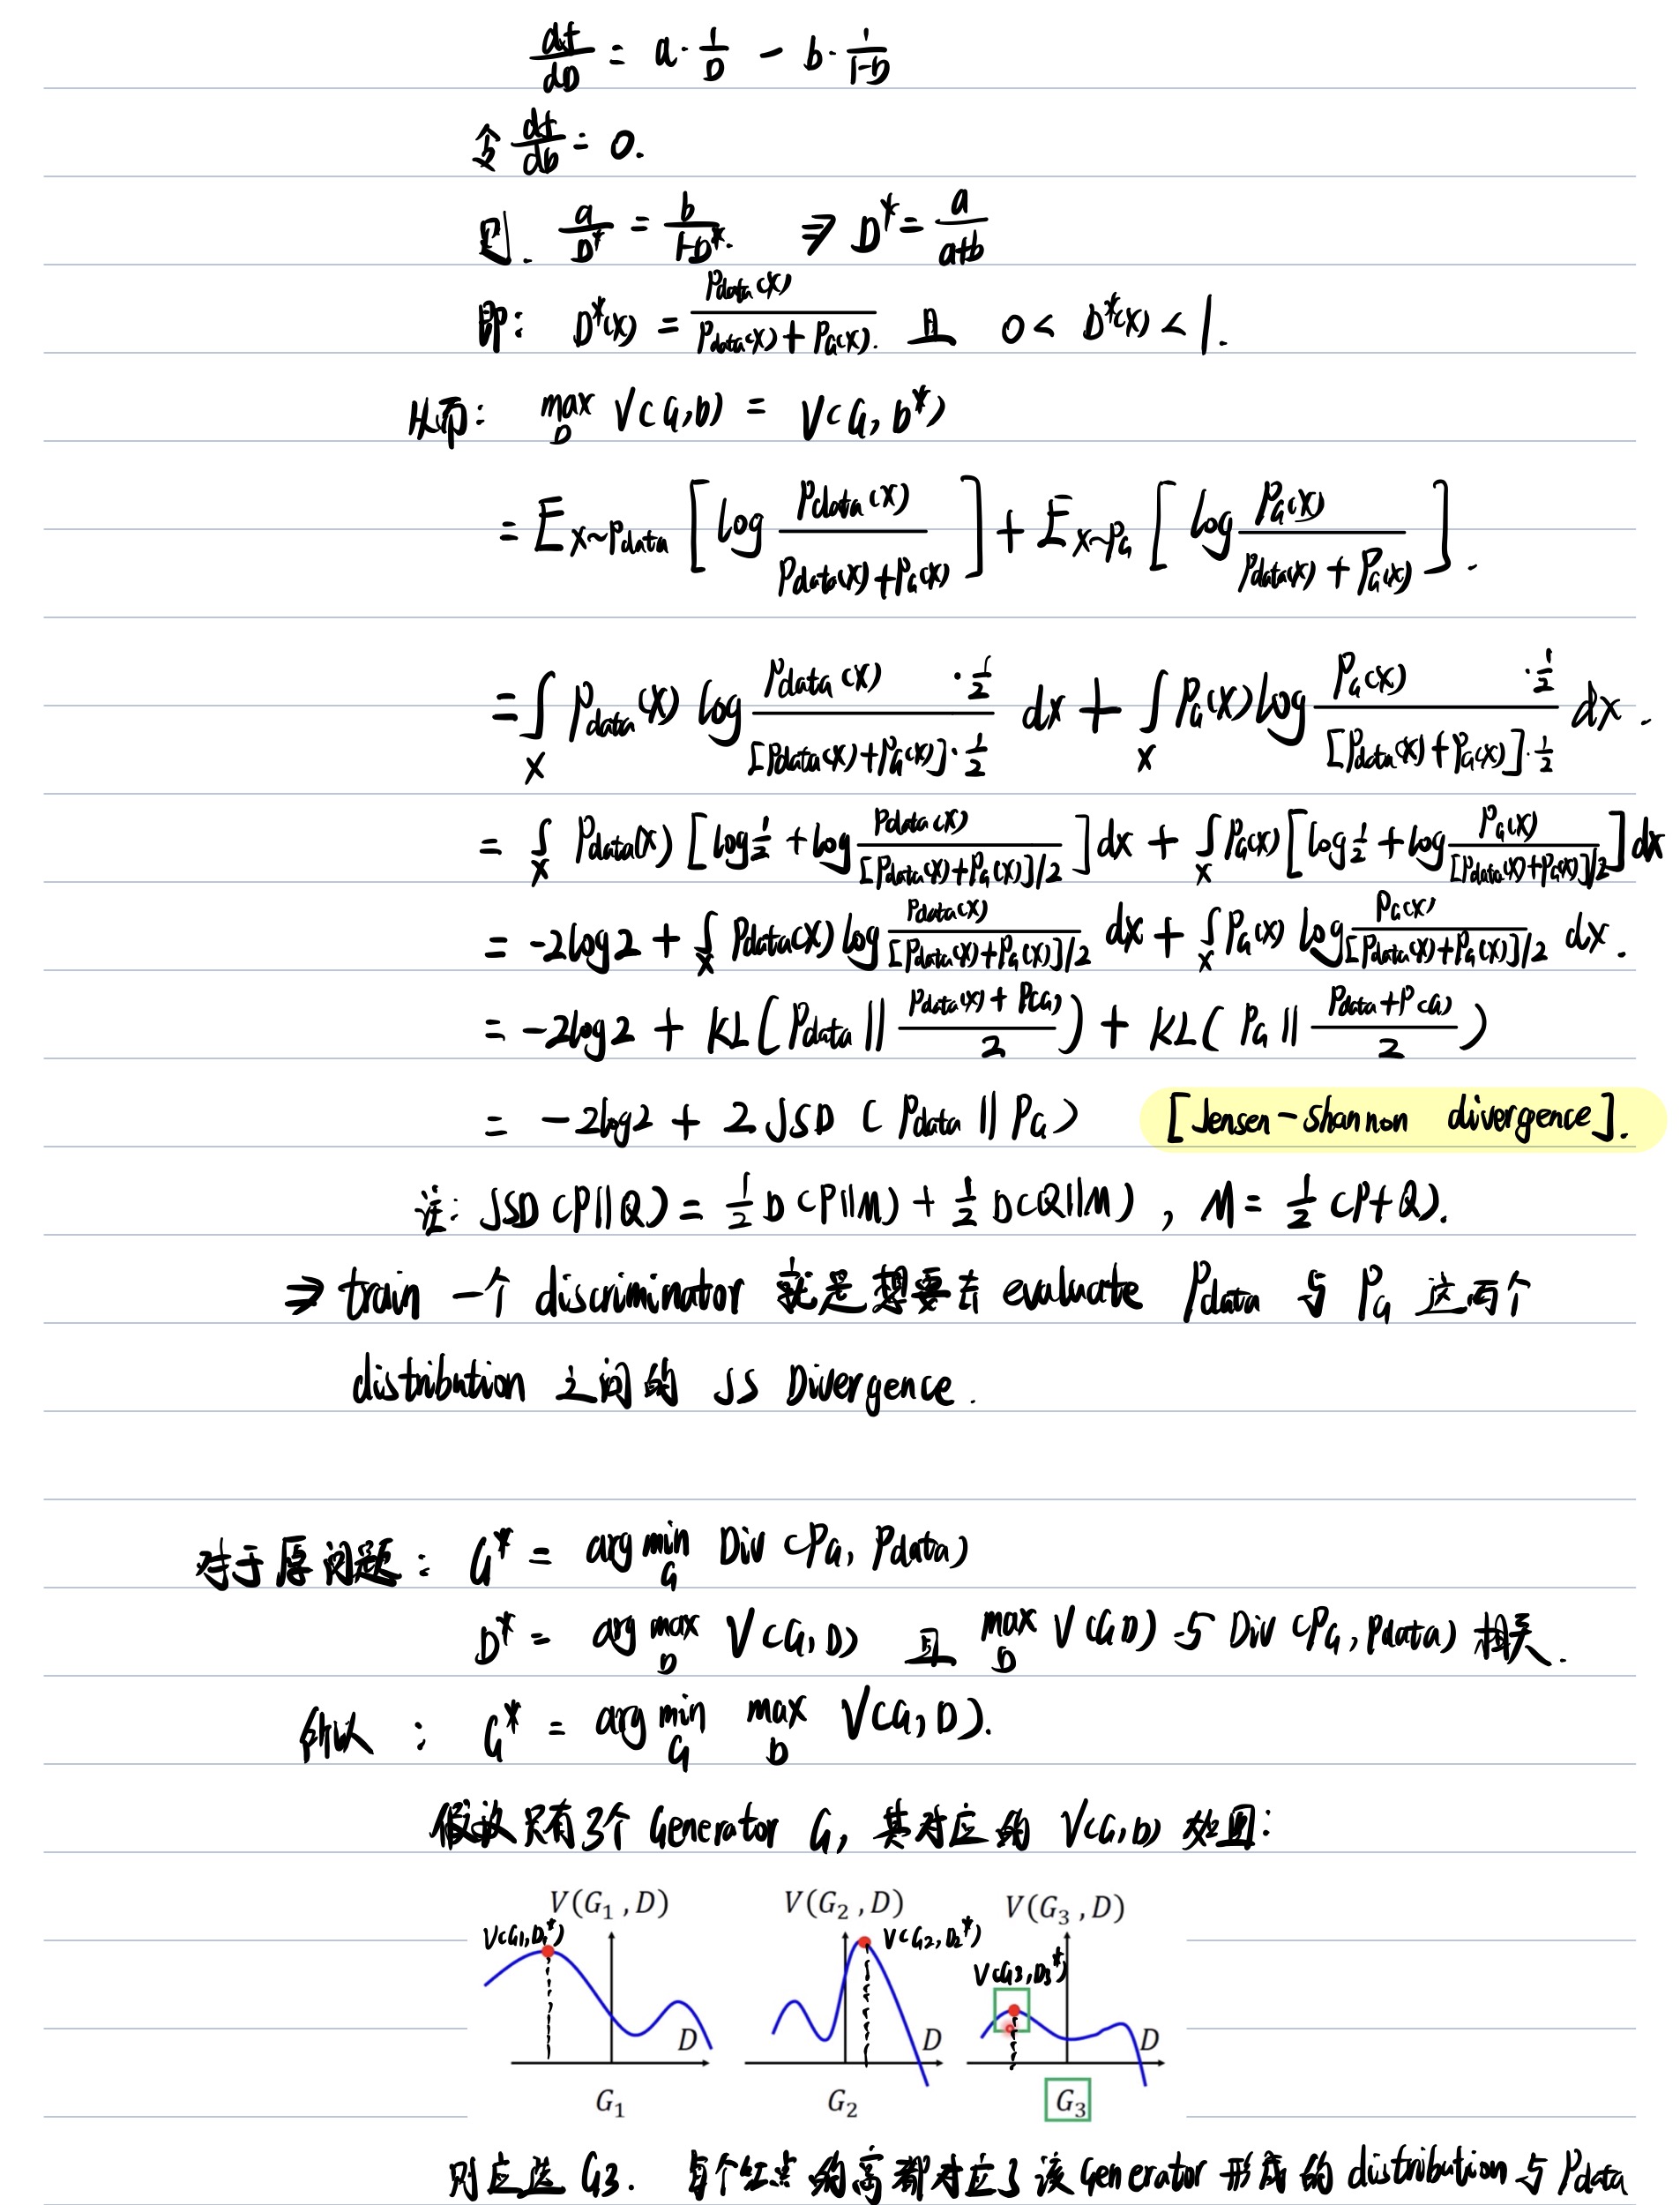 df/dD = a · 1/D − b · 1/(1−D)
令 df/dD = 0.
则. a/D* = b/(1−D*). ⇒ D* = a/(a+b)
即: D*(x) = Pdata(x) / (Pdata(x) + PG(x)). 且 0 < D*(x) < 1.
从而: max_D V(G,D) = V(G, D*)
= E_{x~Pdata} [ log Pdata(x) / (Pdata(x)+PG(x)) ] + E_{x~PG} [ log PG(x) / (Pdata(x) + PG(x)) ].
= ∫_x Pdata(x) log (Pdata(x) · 1/2) / ([Pdata(x)+PG(x)] · 1/2) dx + ∫_x PG(x) log (PG(x) · 1/2) / ([Pdata(x)+PG(x)] · 1/2) dx.
= ∫_x Pdata(x) [ log 1/2 + log Pdata(x) / ([Pdata(x)+PG(x)]/2) ] dx + ∫_x PG(x) [ log 1/2 + log PG(x) / ([Pdata(x)+PG(x)]/2) ] dx
= −2log2 + ∫_x Pdata(x) log Pdata(x) / ([Pdata(x)+PG(x)]/2) dx + ∫_x PG(x) log PG(x) / ([Pdata(x)+PG(x)]/2) dx.
= −2log2 + KL( Pdata || (Pdata(x) + P(G))/2 ) + KL( PG || (Pdata + P(G))/2 )
= −2log2 + 2 JSD ( Pdata || PG ) [Jensen-Shannon divergence].
注: JSD (P||Q) = 1/2 D (P||M) + 1/2 D(Q||M) , M = 1/2 (P+Q).
⇒ train 一个 discriminator 就是想要去 evaluate Pdata 与 PG 这两个
distribution 之间的 JS Divergence.
对于原问题: G* = arg min_G Div (PG, Pdata)
D* = arg max_D V(G, D) 且 max_D V(G D) 与 Div (PG, Pdata) 相关.
所以 : G* = arg min_G max_D V(G, D).
假设只有3个 Generator G, 其对应的 V(G,D) 如图:
V(G₁ , D) V(G₂ , D) V(G₃ , D)
V(G1,D1*) V(G2,D2*)
V(G3,D3*)
D D D
G₁ G₂ G₃
则应选 G3. 每个红点的高都对应了该 Generator 形成的 distribution 与 Pdata